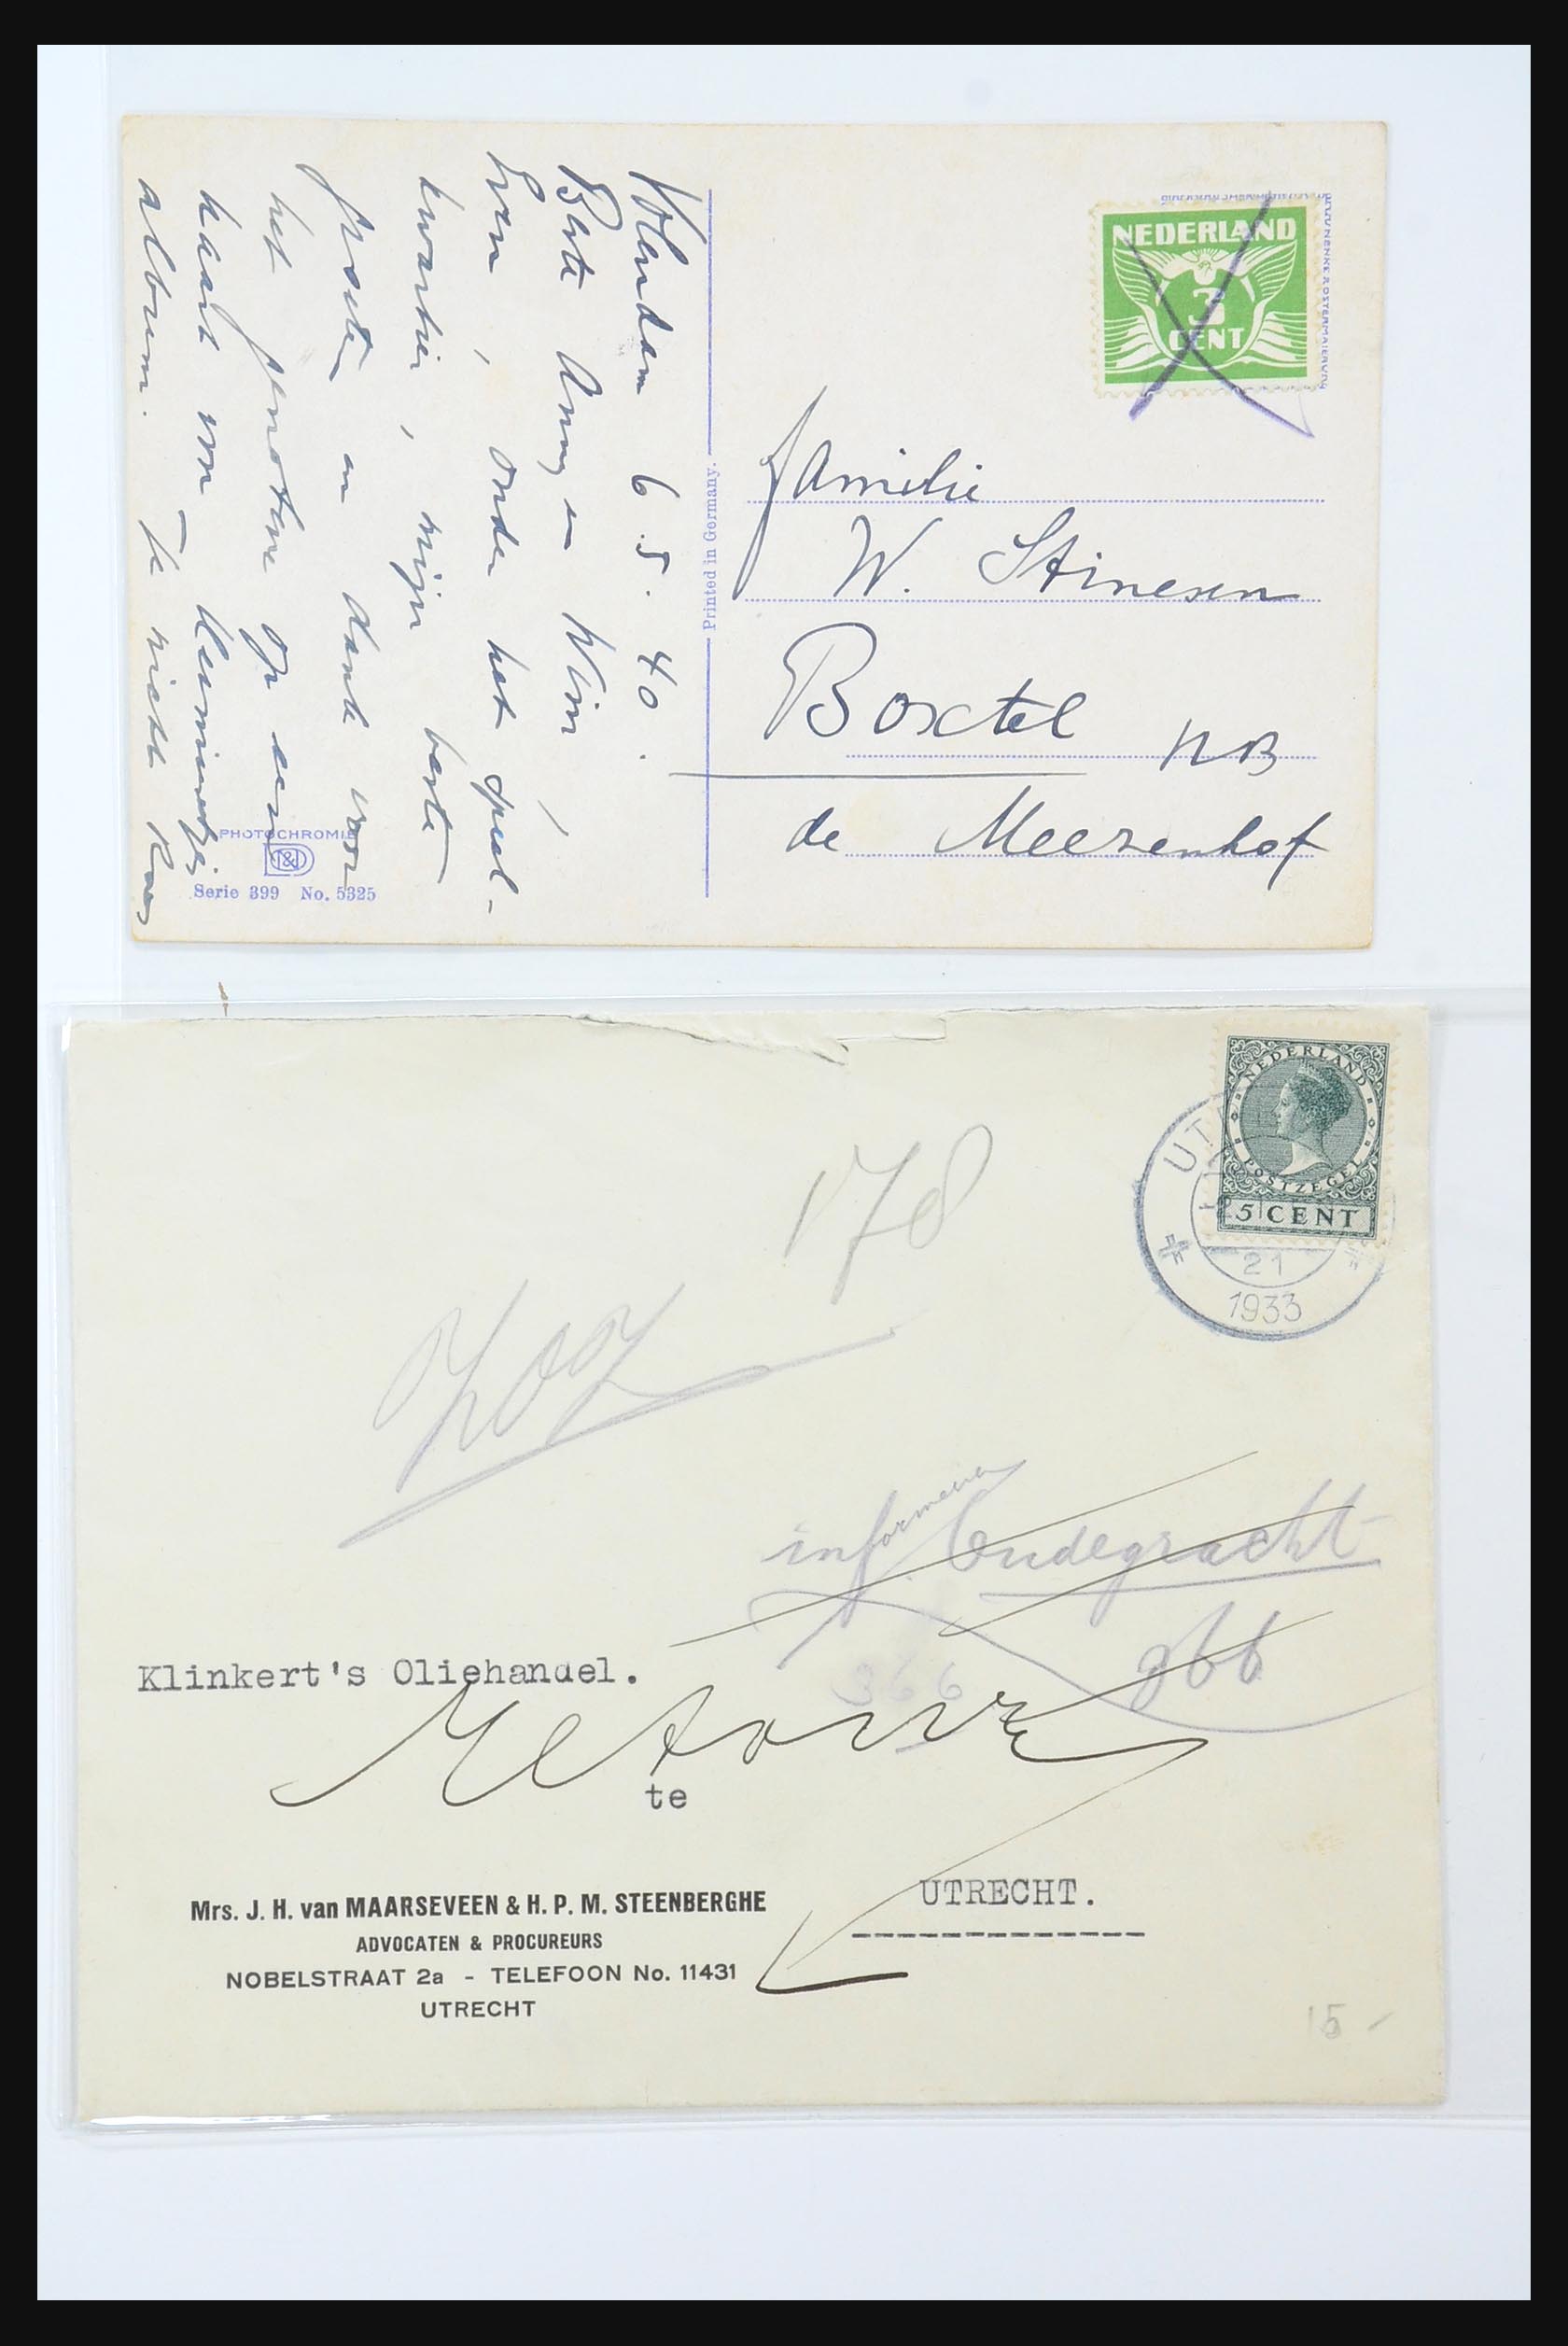 NEDERLAND
3
CENT
Volendam 6.5.40.
Beste Anny en Wim,
Even, onder het speel-
kwartier, mijn beste
groeten en dank voor
het genotene op een
kaart voor
album.
Printed in Germany.
PHOTOCHROMIE
Serie 399 No. 5325
familie
W. Stinesen
Boxtel NB
de Meerenhof
NEDERLAND
POSTZEGEL
5 CENT
UT
21
1933
178
informeren Oudegracht
366
366
Klinkert's Oliehandel.
Retour
te
UTRECHT.
Mrs. J. H. van MAARSEVEEN & H. P. M. STEENBERGHE
ADVOCATEN & PROCUREURS
NOBELSTRAAT 2a - TELEFOON No. 11431
UTRECHT
15 -